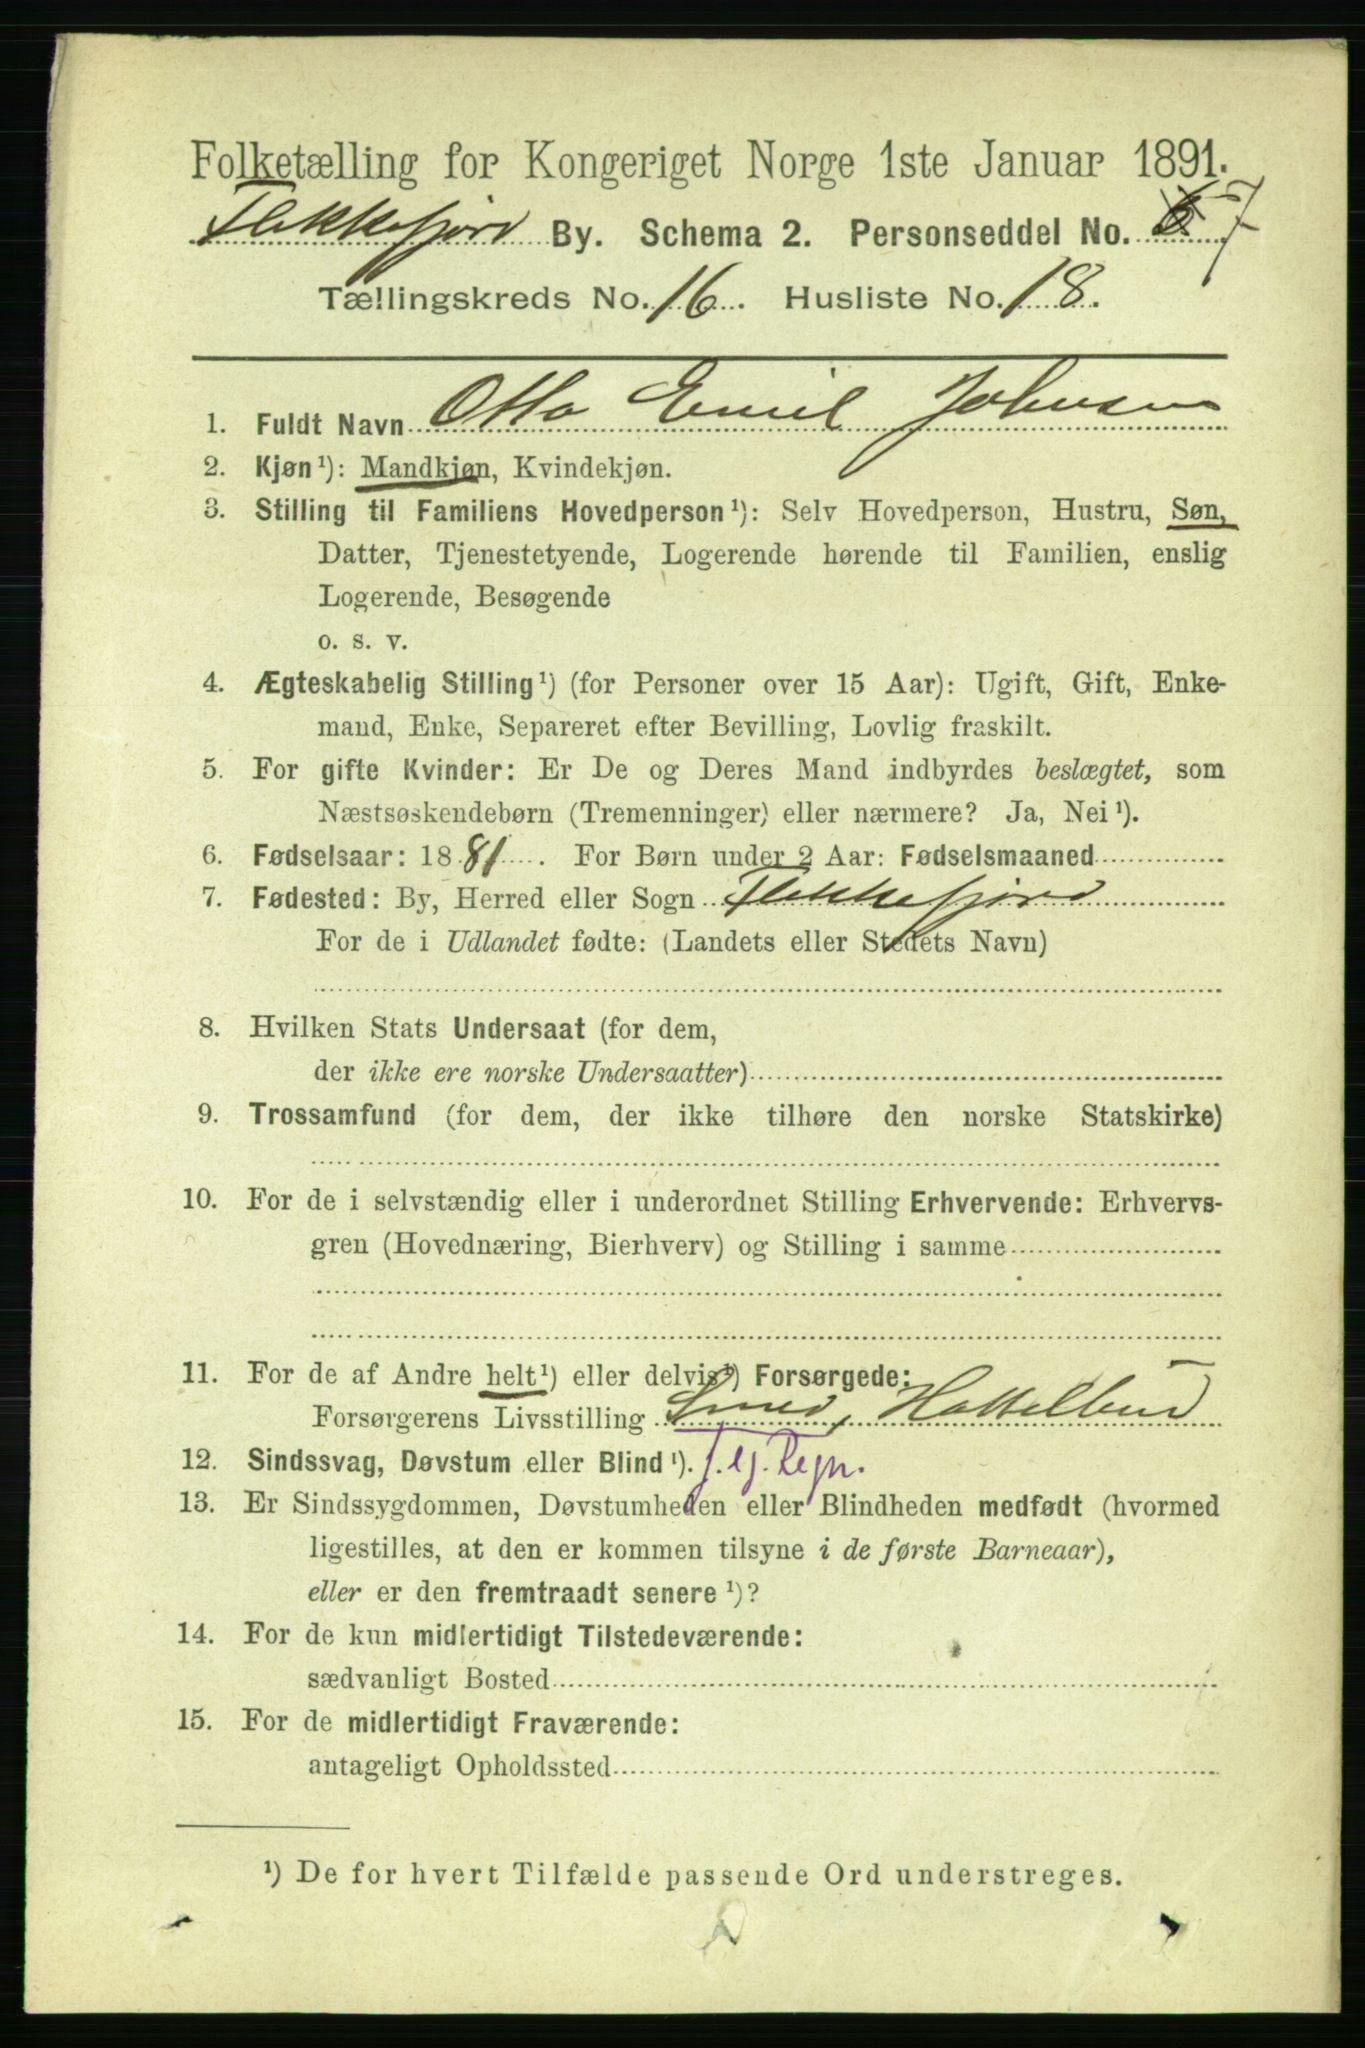 Folketælling for Kongeriget Norge 1ste Januar 1891.
Flekkefjord By. Schema 2. Personseddel No. 6 7
Tællingskreds No. 16. Husliste No. 18.
1. Fuldt Navn Otto Emil Johnsen
2. Kjøn¹): Mandkjøn, Kvindekjøn.
3. Stilling til Familiens Hovedperson¹): Selv Hovedperson, Hustru, Søn,
Datter, Tjenestetyende, Logerende hørende til Familien, enslig
Logerende, Besøgende
o. s. v.
4. Ægteskabelig Stilling¹) (for Personer over 15 Aar): Ugift, Gift, Enke-
mand, Enke, Separeret efter Bevilling, Lovlig fraskilt.
5. For gifte Kvinder: Er De og Deres Mand indbyrdes beslægtet, som
Næstsøskendebørn (Tremenninger) eller nærmere? Ja, Nei¹).
6. Fødselsaar: 1881. For Børn under 2 Aar: Fødselsmaaned
7. Fødested: By, Herred eller Sogn Flekkefjord
For de i Udlandet fødte: (Landets eller Stedets Navn)
8. Hvilken Stats Undersaat (for dem,
der ikke ere norske Undersaatter)
9. Trossamfund (for dem, der ikke tilhøre den norske Statskirke)
10. For de i selvstændig eller i underordnet Stilling Erhvervende: Erhvervs-
gren (Hovednæring, Bierhverv) og Stilling i samme
11. For de af Andre helt¹) eller delvis¹) Forsørgede:
Forsørgerens Livsstilling Smed,
12. Sindssvag, Døvstum eller Blind¹).
13. Er Sindssygdommen, Døvstumheden eller Blindheden medfødt (hvormed
ligestilles, at den er kommen tilsyne i de første Barneaar),
eller er den fremtraadt senere¹)?
14. For de kun midlertidigt Tilstedeværende:
sædvanligt Bosted
15. For de midlertidigt Fraværende:
antageligt Opholdssted
¹) De for hvert Tilfælde passende Ord understreges.